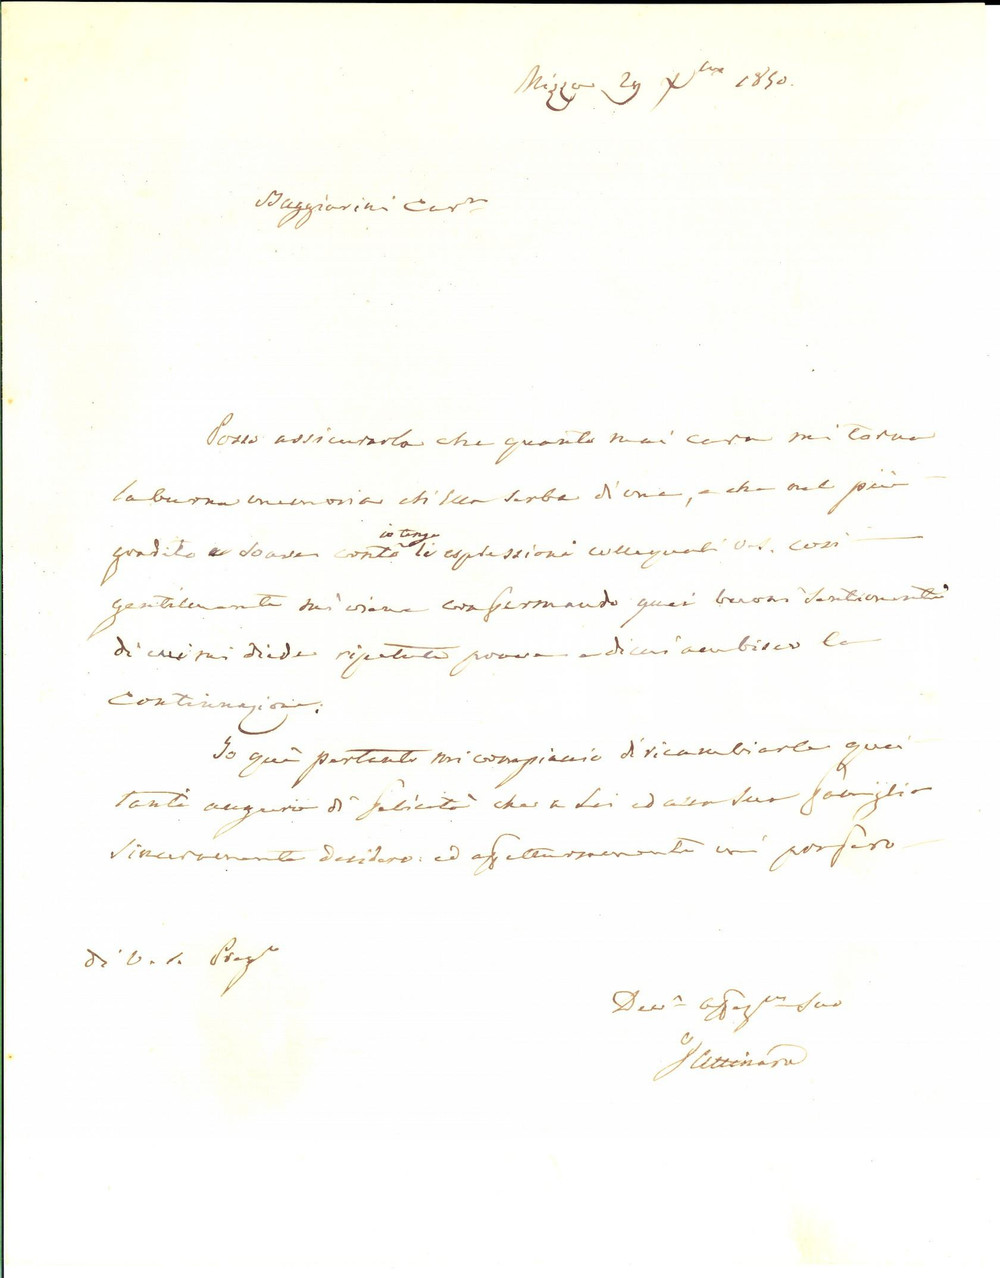 Nizza 29 Xbre 1850.
Baggiarini Carmo
Posso assicurarla che quanto mai cara mi torna
la buona memoria ch'Ella serba di me, e che nel più
gradito e soave conto io tengo le espressioni colle quali V.S. così
gentilmente mi viene confermando quei buoni sentimenti
di cui mi diede ripetute prove e di cui ambisco la
Continuazione:
Io quì pertanto mi compiaccio di ricambiarle quei
tanti augurii di felicità che a Lei ed alla Sua famiglia
sinceramente desidero: ed affettuosamente mi porgero
di V. S. Pregma
Devmo affezmo Suo